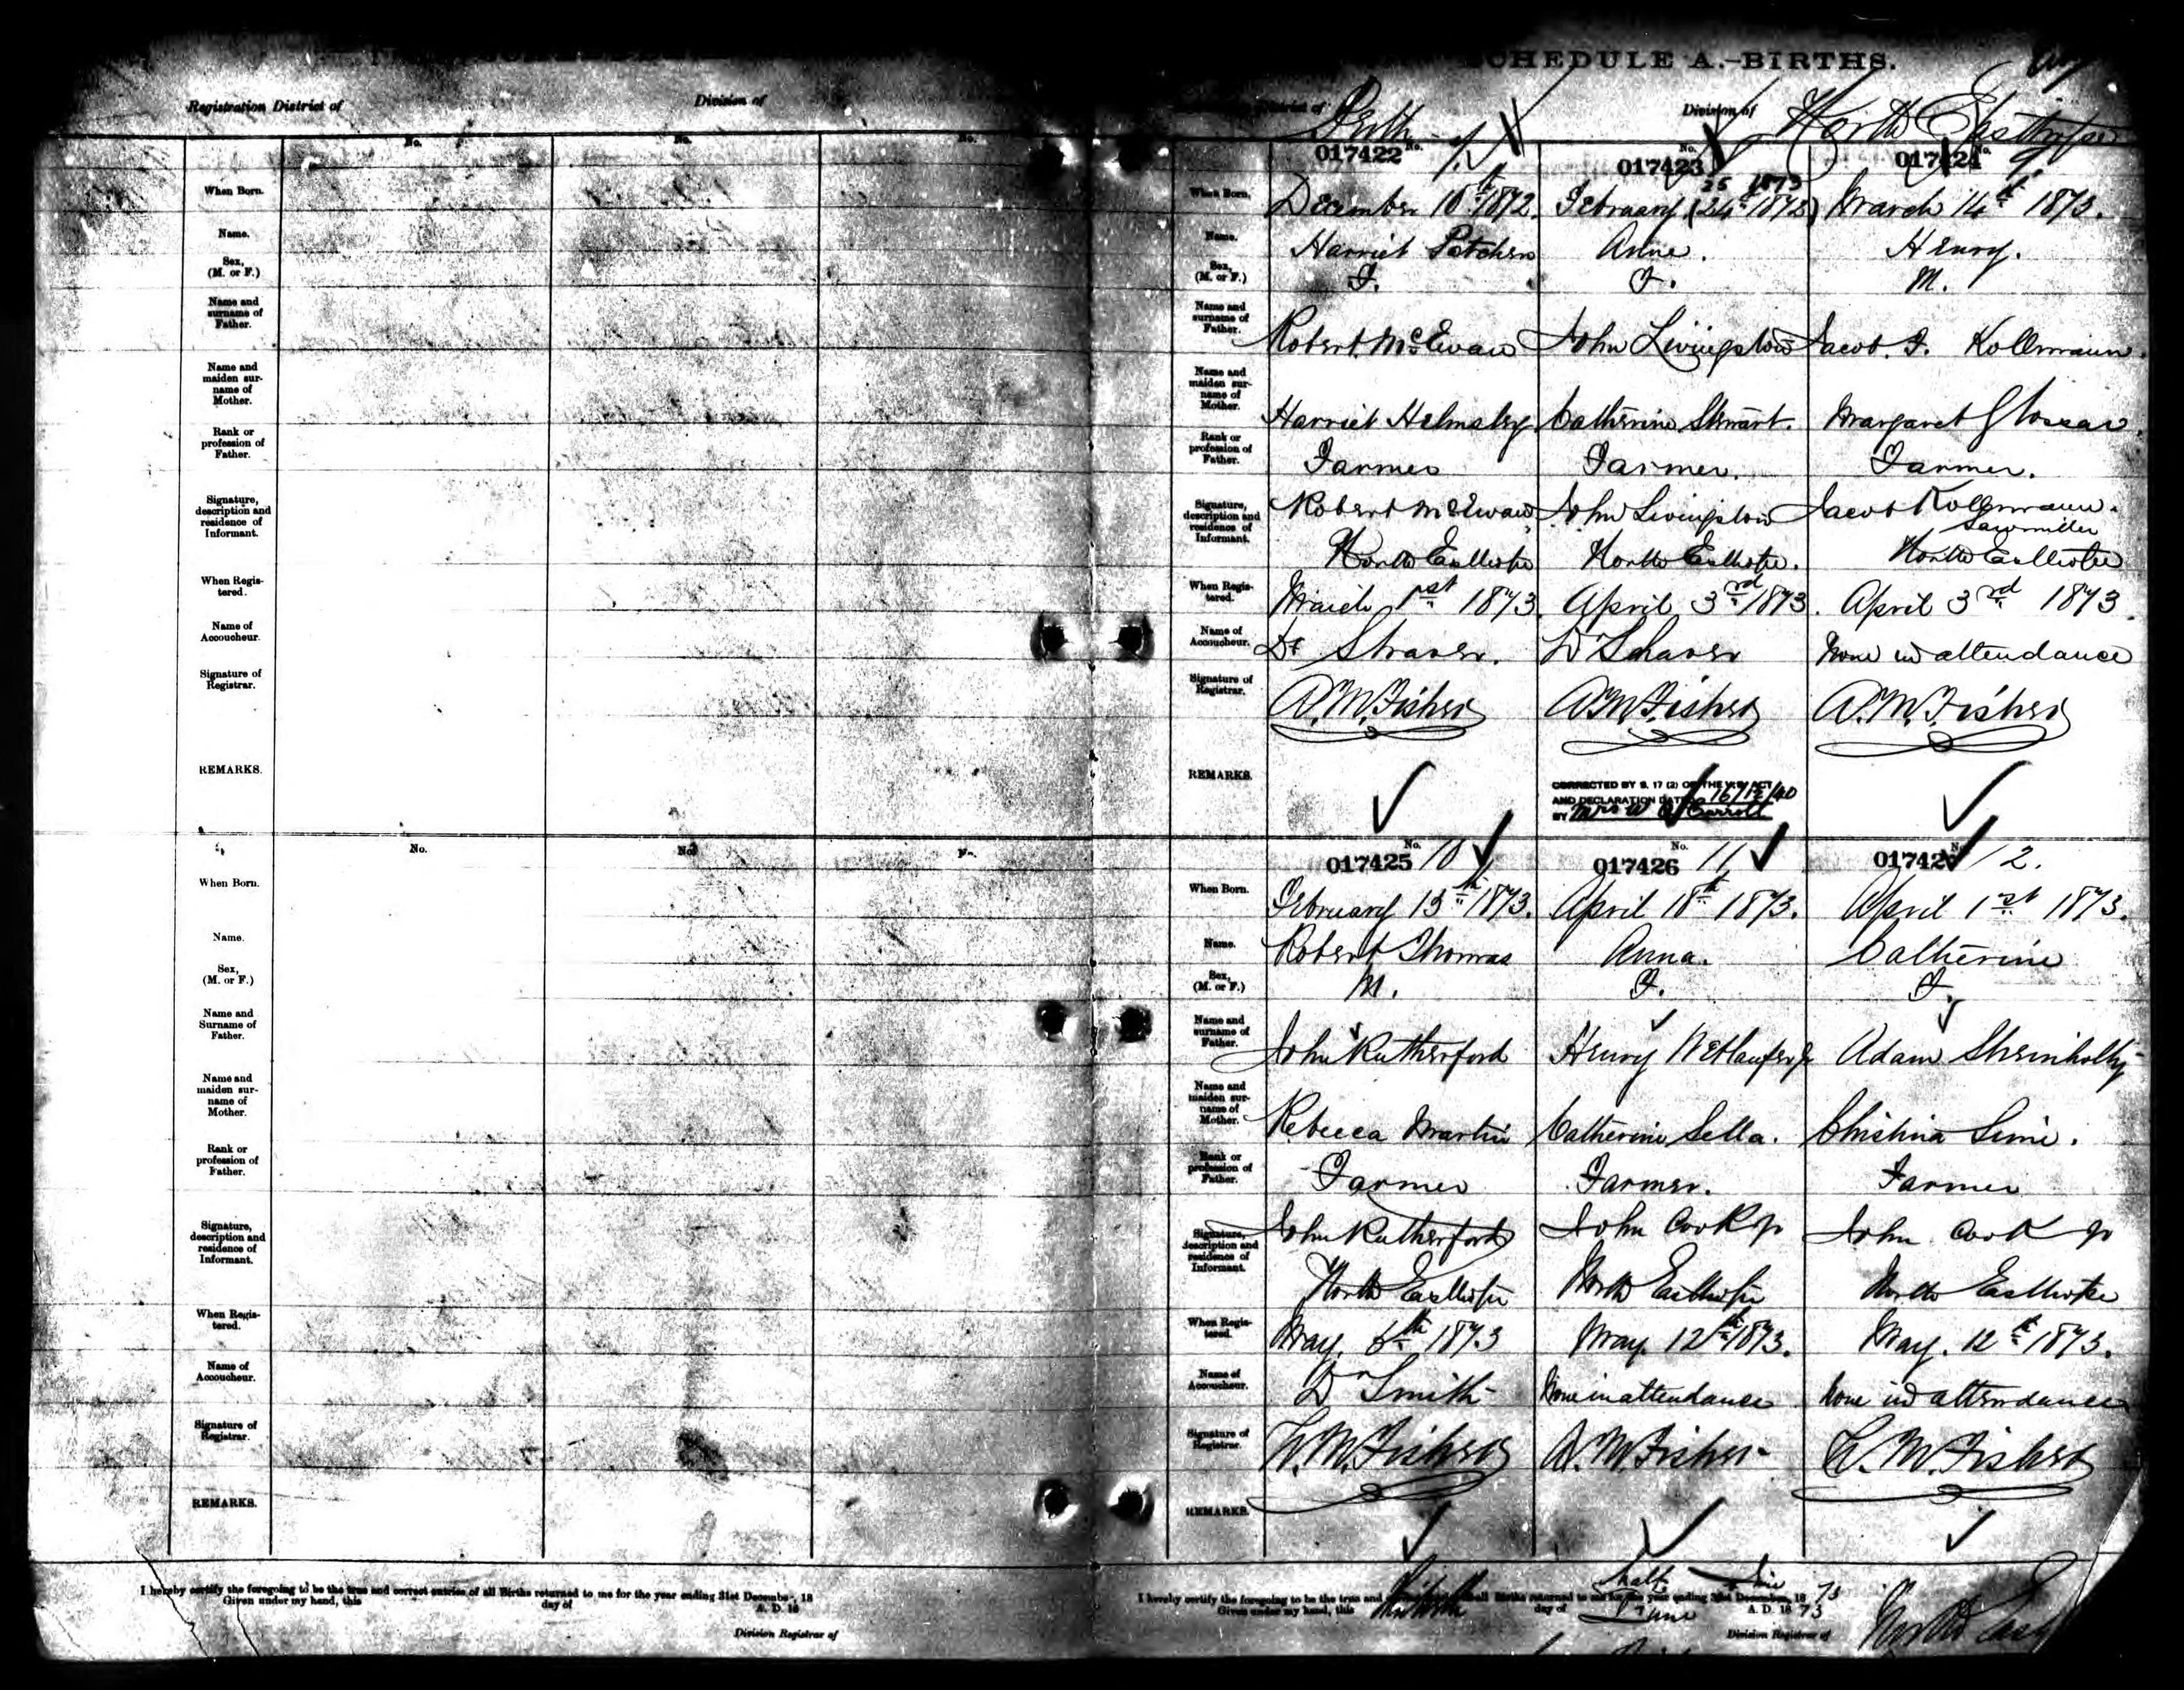 SCHEDULE A.-BIRTHS.
Registration District of
Division of
District of Perth
Division of North Easthope
No. No. No.
When Born.
Name.
Sex, (M. or F.)
Name and surname of Father.
Name and maiden surname of Mother.
Rank or profession of Father.
Signature, description and residence of Informant.
When Registered.
Name of Accoucheur.
Signature of Registrar.
REMARKS.
No. No.
When Born.
Name.
Sex, (M. or F.)
Name and Surname of Father.
Name and maiden surname of Mother.
Rank or profession of Father.
Signature, description and residence of Informant.
When Registered.
Name of Accoucheur.
Signature of Registrar.
REMARKS.
I hereby certify the foregoing to be the true and correct entries of all Births returned to me for the year ending 31st December, 18
Given under my hand, this day of A. D. 18
Division Registrar of
017422 No. 017423 No. 017424 No. 9
25 1873
When Born. December 10th 1872. February (24th 1872) March 14th 1873.
Name. Harriet Anne. Henry.
Sex, (M. or F.) F. F. M.
Name and surname of Father. Robert McEwan John Livingston Jacob. F. Kollmann.
Name and maiden surname of Mother. Harriet Helmsley Catherine Stewart. Margaret
Rank or profession of Father. Farmer Farmer. Farmer.
Signature, description and residence of Informant. Robert McEwan John Livingston Jacob Kollmann.
Sawmiller
North Easthope North Easthope. North Easthope
When Registered. March 1st 1873. April 3rd 1873. April 3rd 1873
Name of Accoucheur. Dr Shaver. Dr Shaver None in attendance
Signature of Registrar. A.M. Fisher A.M. Fisher A.M. Fisher
REMARKS.
CORRECTED BY S. 17 (2) OF THE V.S. ACT
AND DECLARATION DATED 16/12/40
BY Mrs W Carroll
017425 No. 10 017426 No. 11 01742 No. 12.
When Born. February 13th 1873. April 18th 1873. April 1st 1873.
Name. Robert Thomas Anna. Catherine
Sex, (M. or F.) M. F. F.
Name and surname of Father. John Rutherford Henry Adam
Name and maiden surname of Mother. Rebecca Martin Catherine Sella. Christina
Rank or profession of Father. Farmer Farmer. Farmer
Signature, description and residence of Informant. John Rutherford John Cook jr John Cook jr
North Easthope North Easthope North Easthope
When Registered. May. 6th 1873 May. 12th 1873. May. 12th 1873.
Name of Accoucheur. Dr Smith None in attendance None in attendance
Signature of Registrar. A.M. Fisher A.M. Fisher A.M. Fisher
REMARKS.
I hereby certify the foregoing to be the true and all Births returned to me for the half year ending 31st December, 18 73
Given under my hand, this day of June A. D. 18 73
Division Registrar of North East